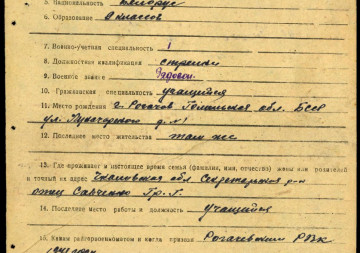 5. Национальность белорус
6. Образование 9 классов
7. Военно-учетная специальность 1
8. Должностная квалификация стрелки
9. Военное звание Рядовой
10. Гражданская специальность учащийся
11. Место рождения г. Рогачов Гомельская обл. БССР
ул. д. №1
12. Последнее место жительства там же
13. Где проживает в настоящее время семья (фамилия, имя, отчество) жены или родителей
и точный их адрес обл р-н
отец Савченко Гр. Г.
14. Последнее место работы и должность учащийся
15. Каким райвоенкоматом и когда призван Рогачевским РВК